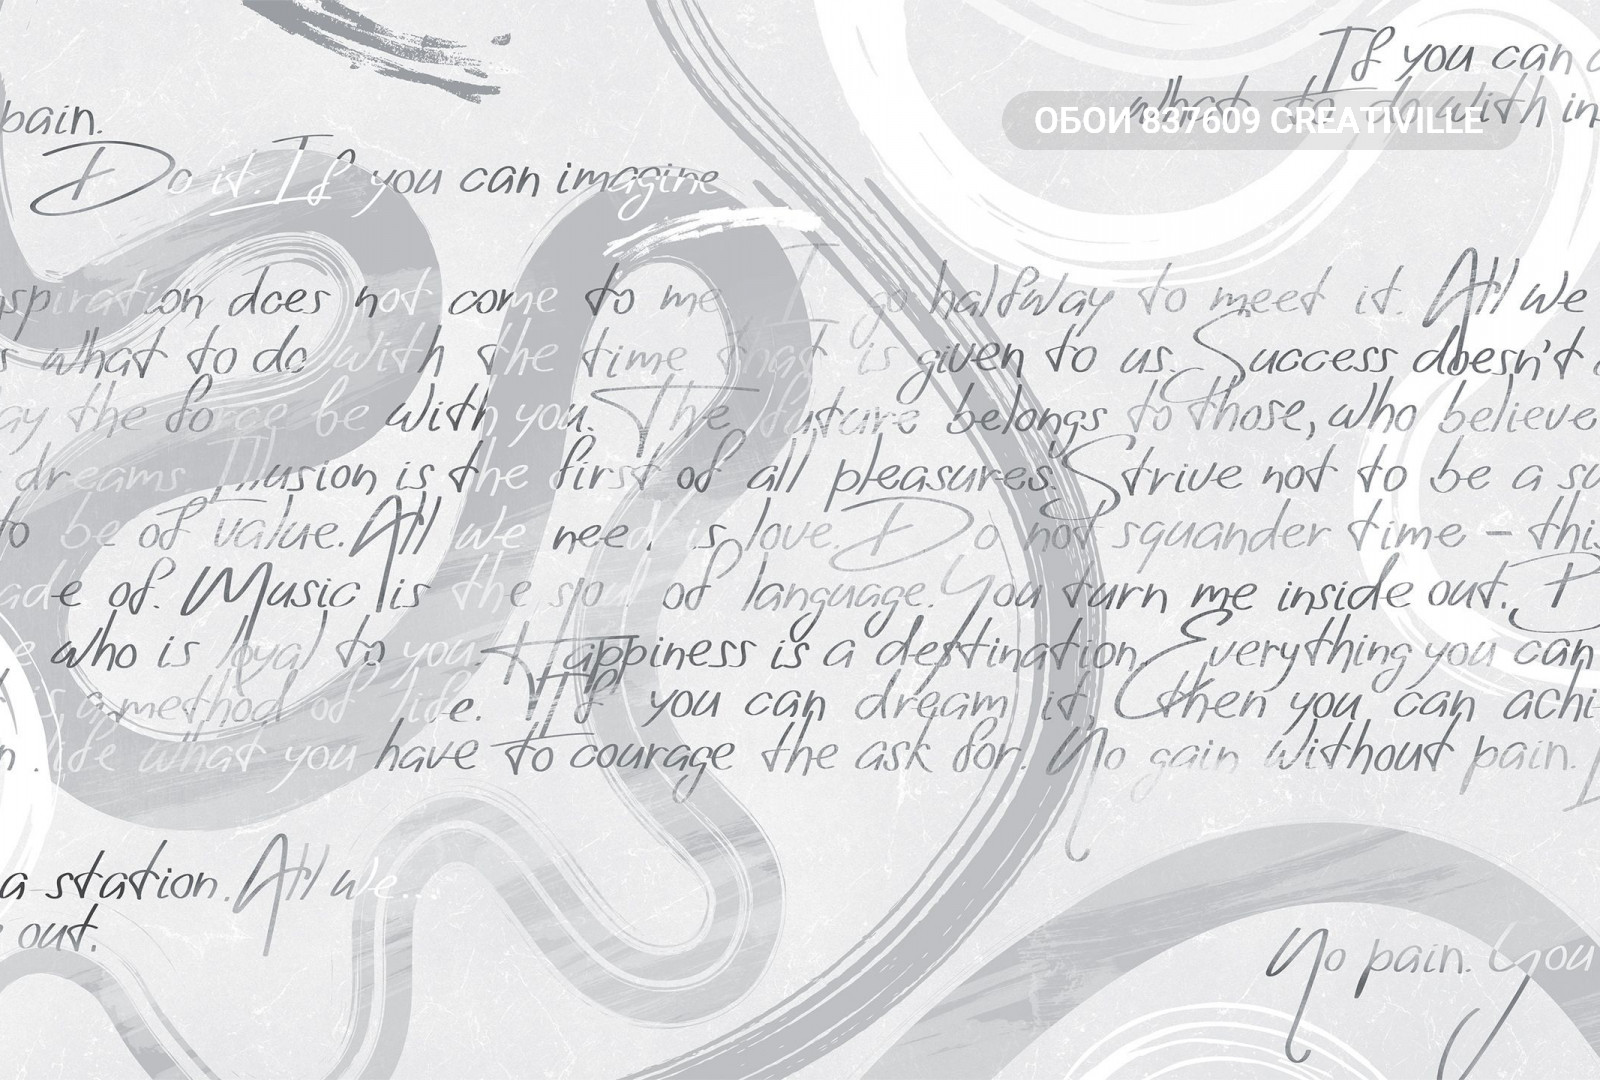 If you can
what to do with in
ОБОИ 837609 CREATIVILLE
pain.
Do it. If you can imagine
spiration does not come to me I go halfway to meet it. All we
s what to do with the time that is given to us. Success doesn't
ay the force be with you. The future belongs to those, who believe
dreams. Illusion is the first of all pleasures. Strive not to be a su
to be of value. All we need is love. Do not squander time – this
ade of. Music is the soul of language. You turn me inside out. D
e who is loyal to you. Happiness is a destination. Everything you can
is a method of life. If you can dream it, then you can achi
n. life what you have to courage the ask for. No gain without pain.
a station. All we...
e out.
No pain. You